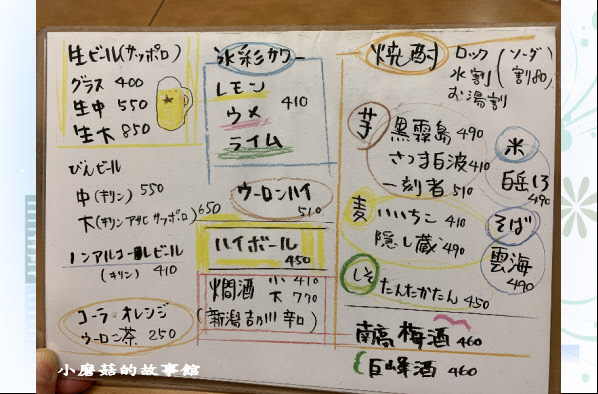 生ビール(サッポロ)
グラス 400
生中 550
生大 850
びんビール
中(キリン) 550
大(キリン アサヒ サッポロ) 650
ノンアルコールビール
(キリン) 410
コーラ・オレンジ
ウーロン茶 250
氷彩サワー
レモン
ウメ 410
ライム
ウーロンハイ
510
ハイボール
450
燗酒 小 410
大 770
(新潟吉乃川 辛口)
焼酎
ロック
水割
お湯割
(ソーダ
割80)
芋
黒霧島 490
さつま白波 410
一刻者 510
米
白岳しろ
490
麦
いいちこ 410
隠し蔵 490
そば
雲海
490
しそ
たんたかたん 450
南高梅酒 460
巨峰酒 460
小磨菇的故事館